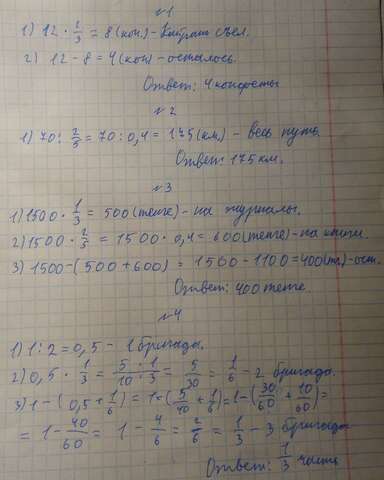 №1
1) 12 · 2/3 = 8 (кон.) - Кирилл съел.
2) 12 - 8 = 4 (кон) - осталось.
Ответ: 4 конфеты
№2
1) 70 : 2/5 = 70 : 0,4 = 175 (км.) - весь путь.
Ответ: 175 км.
№3
1) 1500 · 1/3 = 500 (тенге) - на журналы.
2) 1500 · 2/5 = 1500 · 0,4 = 600 (тенге) - на книги.
3) 1500 - (500 + 600) = 1500 - 1100 = 400 (тг.) - ост.
Ответ: 400 тенге.
№4
1) 1 : 2 = 0,5 - 1 бригада.
2) 0,5 · 1/3 = 5 · 1/10 · 3 = 5/30 = 1/6 - 2 бригада.
3) 1 - (0,5 + 1/6) = 1 - (5/10 + 1/6) = 1 - (30/60 + 10/60) =
= 1 - 40/60 = 1 - 4/6 = 2/6 = 1/3 - 3 бригада
Ответ: 1/3 часть